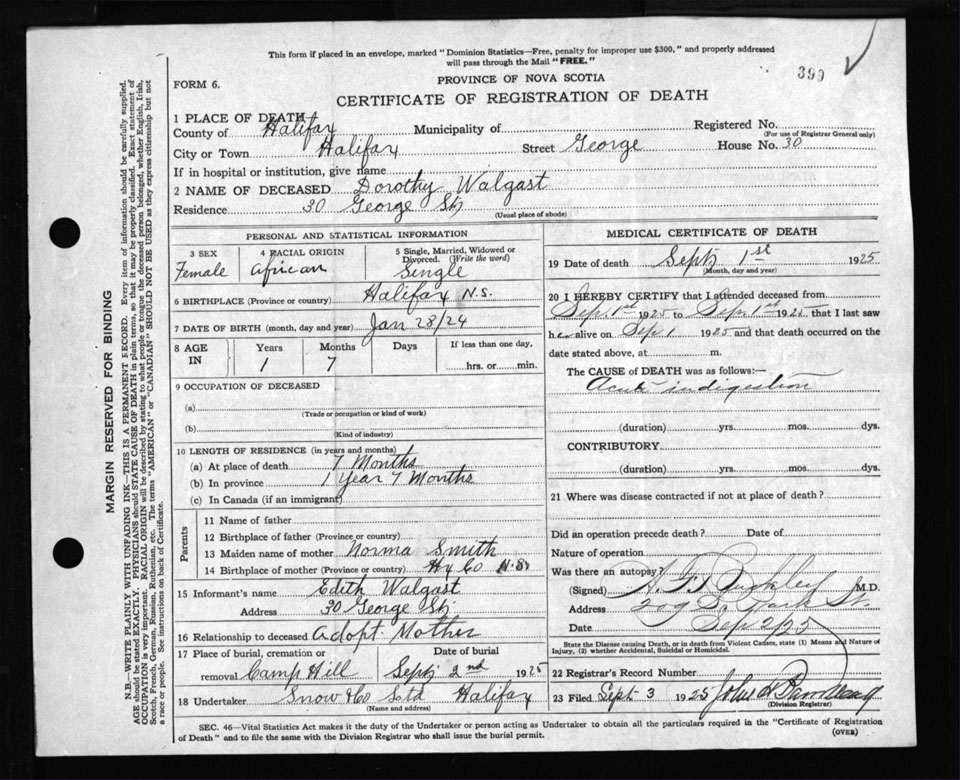 This form if placed in an envelope, marked "Dominion Statistics—Free, penalty for improper use $300," and properly addressed
will pass through the Mail "FREE."
399
FORM 6.
PROVINCE OF NOVA SCOTIA
CERTIFICATE OF REGISTRATION OF DEATH
1 PLACE OF DEATH
County of Halifax Municipality of Registered No.
(For use of Registrar General only)
City or Town Halifax Street George House No. 30
If in hospital or institution, give name
2 NAME OF DECEASED Dorothy Walgast
Residence 30 George St
(Usual place of abode)
PERSONAL AND STATISTICAL INFORMATION
3 SEX 4 RACIAL ORIGIN 5 Single, Married, Widowed or
Divorced. (Write the word)
Female African Single
6 BIRTHPLACE (Province or country) Halifax N.S.
7 DATE OF BIRTH (month, day and year) Jan 28/24
8 AGE IN Years Months Days If less than one day,
1 7 hrs. or min.
9 OCCUPATION OF DECEASED
(a)
(Trade or occupation or kind of work)
(b)
(Kind of industry)
10 LENGTH OF RESIDENCE (in years and months)
(a) At place of death 7 Months
(b) In province 1 Year 7 Months
(c) In Canada (if an immigrant)
Parents
11 Name of father
12 Birthplace of father (Province or country)
13 Maiden name of mother Norma Smith
14 Birthplace of mother (Province or country) Hx Co N.S.
15 Informant's name Edith Walgast
Address 30 George St
16 Relationship to deceased Adopt. Mother
17 Place of burial, cremation or removal Date of burial
Camp Hill Sept 2nd 1925
18 Undertaker Snow & Co Ltd Halifax
(Name and address)
MEDICAL CERTIFICATE OF DEATH
19 Date of death Sept 1st 1925
(Month, day and year)
20 I HEREBY CERTIFY that I attended deceased from
Sep. 1st 1925 to Sep. 1st 1925 that I last saw
her alive on Sep 1 1925 and that death occurred on
date stated above, at m.
The CAUSE of DEATH was as follows:—
Acute indigestion
(duration) yrs. mos. dys.
CONTRIBUTORY
(duration) yrs. mos. dys.
21 Where was disease contracted if not at place of death?
Did an operation precede death? Date of
Nature of operation
Was there an autopsy?
(Signed) Buckley M.D.
Address 209 S. Park St.
Date Sep 2/25
State the Disease causing Death, or in death from Violent Causes, state (1) Means and Nature of
Injury, (2) whether Accidental, Suicidal or Homicidal.
22 Registrar's Record Number
23 Filed Sept. 3 1925 John
(Division Registrar)
SEC. 46—Vital Statistics Act makes it the duty of the Undertaker or person acting as Undertaker to obtain all the particulars required in the "Certificate of Registration
of Death" and to file the same with the Division Registrar who shall issue the burial permit.
(OVER)
MARGIN RESERVED FOR BINDING
N.B.—WRITE PLAINLY WITH UNFADING INK—THIS IS A PERMANENT RECORD. Every item of information should be carefully supplied.
AGE should be stated EXACTLY. PHYSICIANS should STATE CAUSE OF DEATH in plain terms, so that it may be properly classified. Exact statement of
OCCUPATION is very important. RACIAL ORIGIN will be described by stating to what people or tongue the deceased person belonged, whether English, Irish,
Scotch, French, German, Russian, Ruthenian, etc. The terms "AMERICAN" or "CANADIAN" SHOULD NOT BE USED as they express citizenship but not
a race or people. See instructions on back of Certificate.